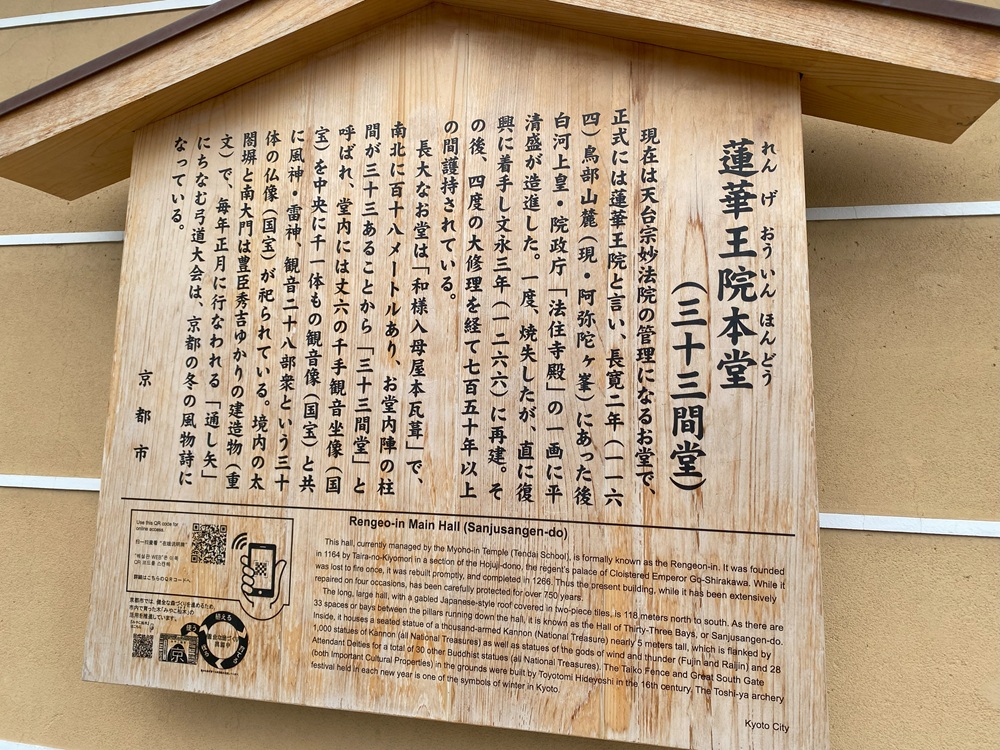 れんげおういんほんどう
蓮華王院本堂
(三十三間堂)
現在は天台宗妙法院の管理になるお堂で、
正式には蓮華王院と言い、長寛二年(一一六
四)鳥部山麓(現・阿弥陀ヶ峯)にあった後
白河上皇・院政庁「法住寺殿」の一画に平
清盛が造進した。一度、焼失したが、直に復
興に着手し文永三年(一二六六)に再建。そ
の後、四度の大修理を経て七百五十年以上
の間護持されている。
長大なお堂は「和様入母屋本瓦葺」で、
南北に百十八メートルあり、お堂内陣の柱
間が三十三あることから「三十三間堂」と
呼ばれ、堂内には丈六の千手観音坐像(国
宝)を中央に千一体もの観音像(国宝)と共
に風神・雷神、観音二十八部衆という三十
体の仏像(国宝)が祀られている。境内の太
閤塀と南大門は豊臣秀吉ゆかりの建造物(重
文)で、毎年正月に行なわれる「通し矢」
にちなむ弓道大会は、京都の冬の風物詩に
なっている。
京都市
Use this QR code for
online access.
扫一扫查看"在线说明牌"
詳細はこちらのQRコードへ
京都市では、健全な森づくりを進めるため、
市内で育った木「みやこ杣木」の
活用を推進しています。
Rengeo-in Main Hall (Sanjusangen-do)
This hall, currently managed by the Myoho-in Temple (Tendai School), is formally known as the Rengeon-in. It was founded
in 1164 by Taira-no-Kiyomori in a section of the Hojuji-dono, the regent's palace of Cloistered Emperor Go-Shirakawa. While it
was lost to fire once, it was rebuilt promptly, and completed in 1266. Thus the present building, while it has been extensively
repaired on four occasions, has been carefully protected for over 750 years.
The long, large hall, with a gabled Japanese-style roof covered in two-piece tiles, is 118 meters north to south. As there are
33 spaces or bays between the pillars running down the hall, it is known as the Hall of Thirty-Three Bays, or Sanjusangen-do.
Inside, it houses a seated statue of a thousand-armed Kannon (National Treasure) nearly 5 meters tall, which is flanked by
1,000 statues of Kannon (all National Treasures) as well as statues of the gods of wind and thunder (Fujin and Raijin) and 28
Attendant Deities for a total of 30 other Buddhist statues (all National Treasures). The Taiko Fence and Great South Gate
(both Important Cultural Properties) in the grounds were built by Toyotomi Hideyoshi in the 16th century. The Toshi-ya archery
festival held in each new year is one of the symbols of winter in Kyoto.
Kyoto City